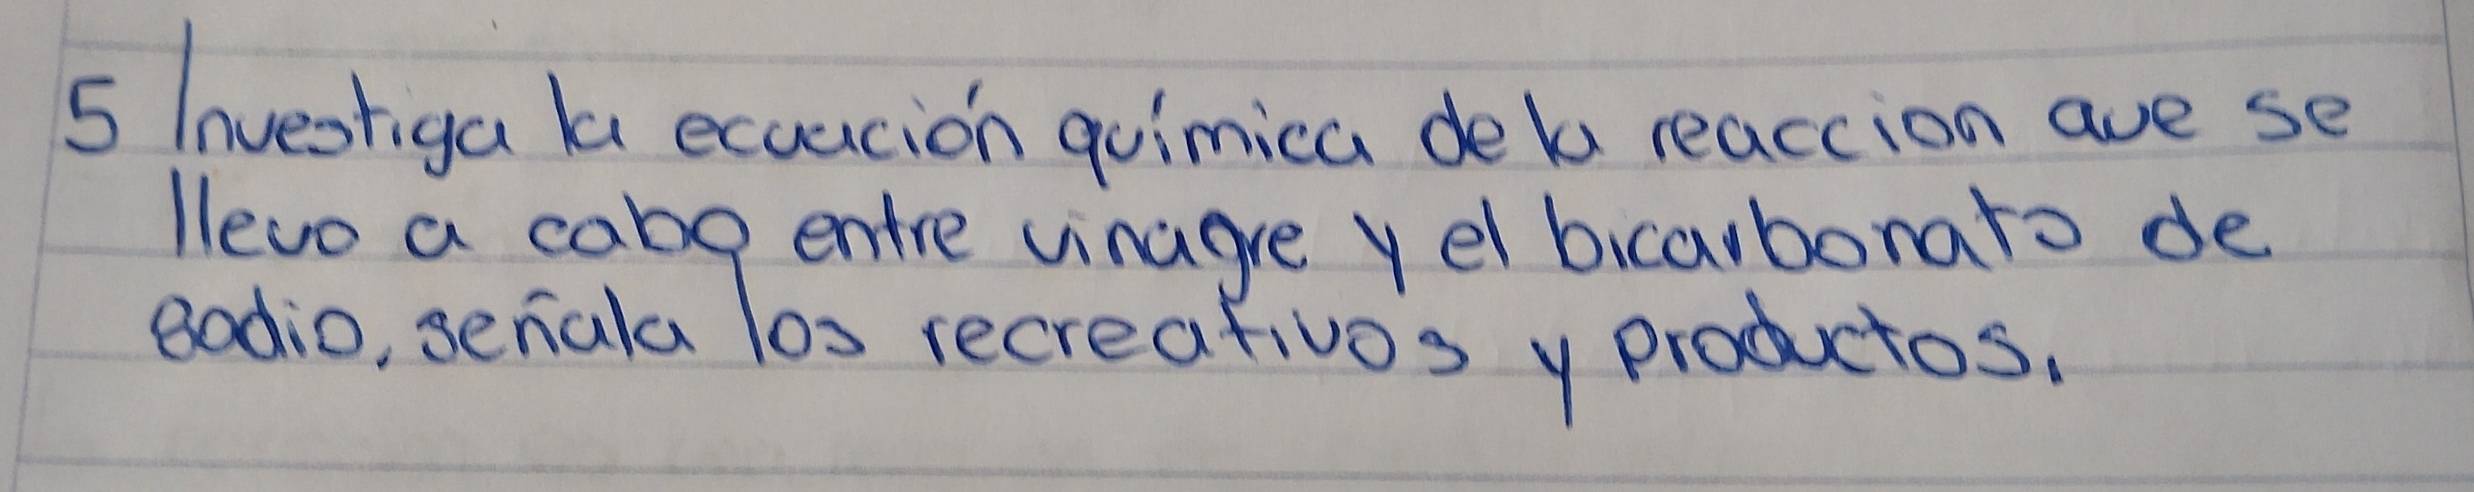 5 Investiga la ecuación química de la reaccion que se
llevo a cabo entre vinagre y el bicarbonato de
sodio, señala los recreativos y productos.